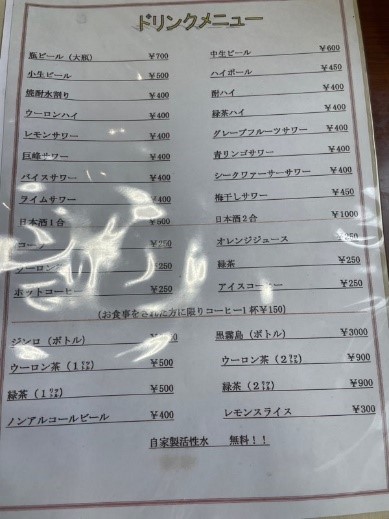 ドリンクメニュー
瓶ビール（大瓶） ￥700 中生ビール ￥600
小生ビール ￥500 ハイボール ￥450
焼酎水割り ￥400 酎ハイ ￥400
ウーロンハイ ￥400 緑茶ハイ ￥400
レモンサワー ￥400 グレープフルーツサワー ￥400
巨峰サワー ￥400 青リンゴサワー ￥400
パイスサワー ￥400 シークヮァーサーサワー ￥400
ライムサワー ￥400 梅干しサワー ￥450
日本酒１合 ￥500 日本酒２合 ￥1000
コーラ ￥250 オレンジジュース ￥250
ウーロン ￥250 緑茶 ￥250
ホットコーヒー ￥250 アイスコーヒー ￥250
（お食事をされた方に限りコーヒー1杯￥150）
ジンロ（ボトル） 黒霧島（ボトル） ￥3000
ウーロン茶（１㍑） ￥500 ウーロン茶（２㍑） ￥900
緑茶（１㍑） ￥500 緑茶（２㍑） ￥900
ノンアルコールビール ￥400 レモンスライス ￥300
自家製活性水 無料！！